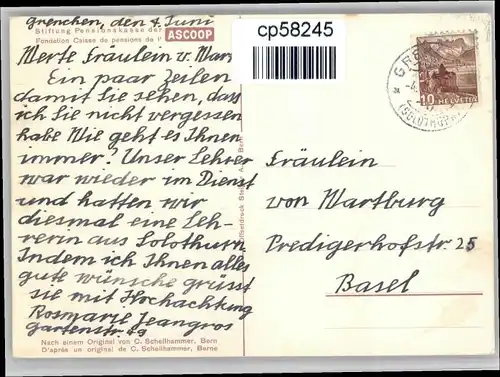 Grenchen, den 4. Juni
Stiftung Pensionskasse der
Fondation Caisse de pensions de l'
ASCOOP
cp58245
Werte Fräulein v. War
Ein paar Zeilen
damit Sie sehen, das
ich Sie nicht vergessen
habe Wie geht es Ihnen
immer? Unser Lehrer
war wieder im Dienst
und hatten wir
diesmal eine Leh-
rerin aus Solothurn.
Indem ich Ihnen alles
gute wünsche grüsst
sie mit Hochachtung
Rosmarie Jeangros
Gartenstr 49
Nach einem Original von C. Schellhammer, Bern
D'après un original de C. Schellhammer, Berne
Offsetdruck
Bern
GRE
(SOLOTHUR
10 HELVETIA
Fräulein
von Wartburg
Predigerhofstr. 25
Basel